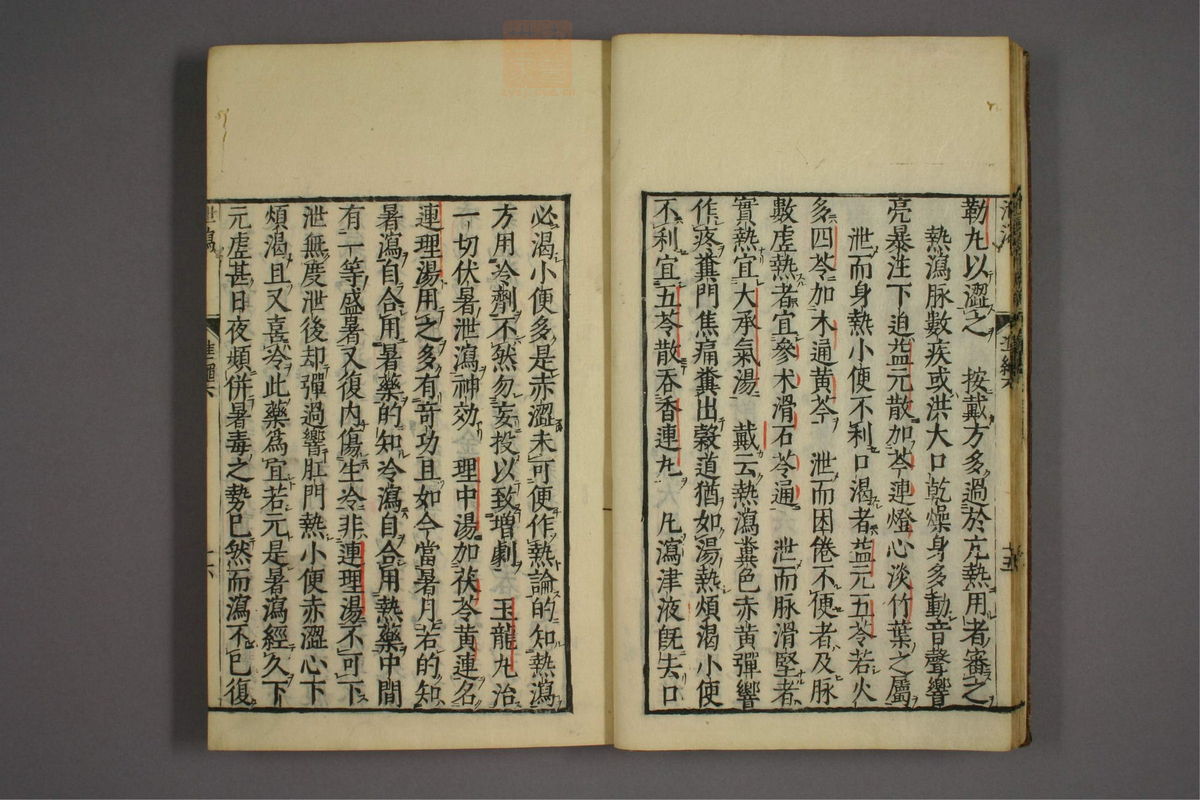 勒丸以澀之　按戴方多過於亢熱用者審之
熱瀉脉數疾或洪大口乾燥身多動音聲響
亮暴注下迫益元散加芩連燈心淡竹葉之屬
泄而身熱小便不利口渴者益元五苓若火
多四苓加木通黃芩　泄而困倦不便者及脉
數虛熱者宜參朮滑石苓通　泄而脉滑堅者
實熱宜大承氣湯　戴云熱瀉糞色赤黃彈響
作疼糞門焦痛糞出穀道猶如湯熱煩渴小便
不利宜五苓散吞香連丸　凡瀉津液既去口
必渴小便多是赤澀未可便作熱論的知熱瀉
方用冷劑不然勿妄投以致增劇　玉龍丸治
一切伏暑泄瀉神効　理中湯加茯苓黃連名
連理湯用之多有奇功且如今當暑月若的知
暑瀉自合用暑藥的知冷瀉自合用熱藥中間
有一等盛暑又復內傷生冷非連理湯不可下
泄無度泄後却彈過響肛門熱小便赤澀心下
煩渴且又喜冷此藥爲宜若元是暑瀉經久下
元虛甚日夜頻併暑毒之勢已然而瀉不已復
泄瀉
準繩六
十六